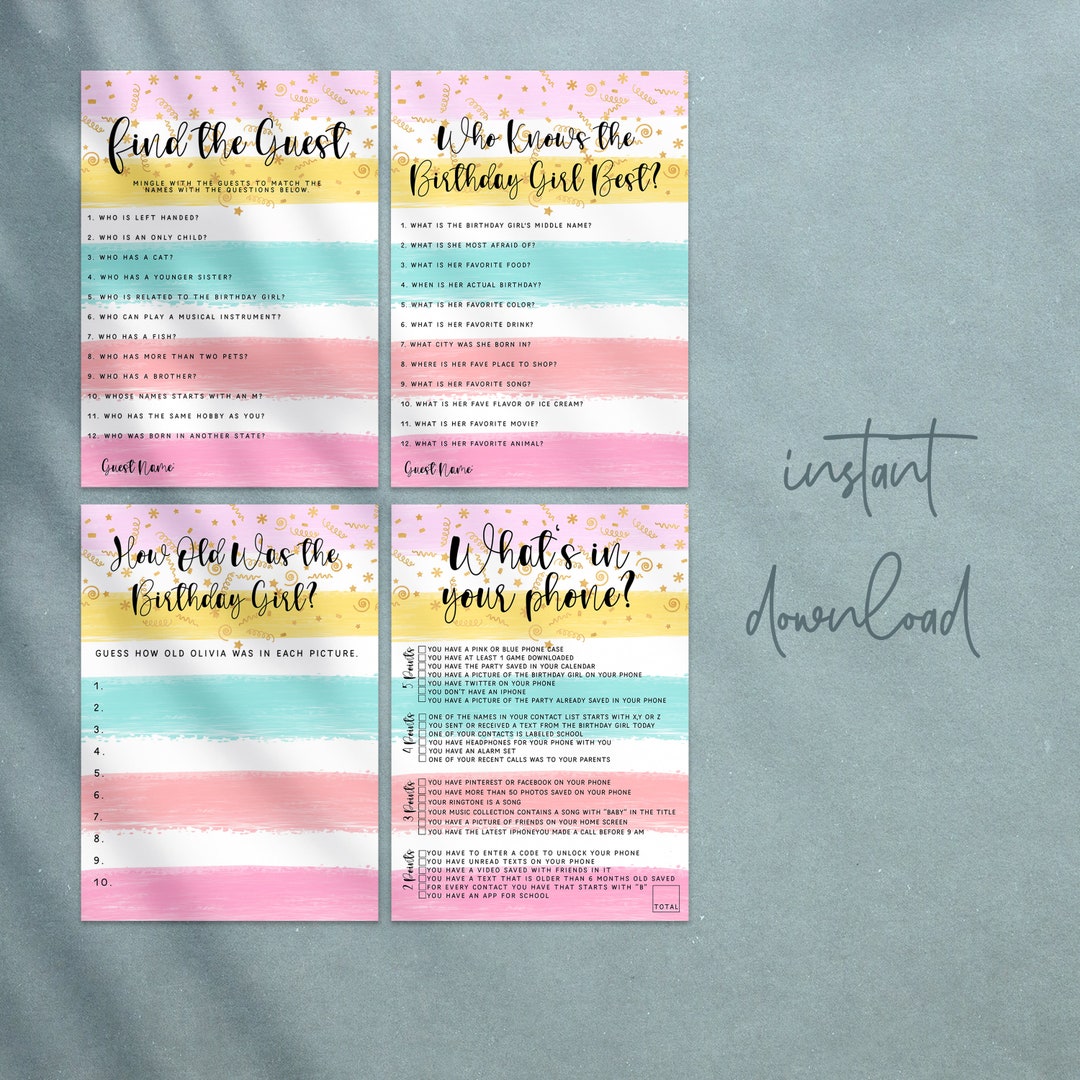 Find the Guest
MINGLE WITH THE GUESTS TO MATCH THE
NAMES WITH THE QUESTIONS BELOW.
1. WHO IS LEFT HANDED?
2. WHO IS AN ONLY CHILD?
3. WHO HAS A CAT?
4. WHO HAS A YOUNGER SISTER?
5. WHO IS RELATED TO THE BIRTHDAY GIRL?
6. WHO CAN PLAY A MUSICAL INSTRUMENT?
7. WHO HAS A FISH?
8. WHO HAS MORE THAN TWO PETS?
9. WHO HAS A BROTHER?
10. WHOSE NAMES STARTS WITH AN M?
11. WHO HAS THE SAME HOBBY AS YOU?
12. WHO WAS BORN IN ANOTHER STATE?
Guest Name:
Who Knows the
Birthday Girl Best?
1. WHAT IS THE BIRTHDAY GIRL'S MIDDLE NAME?
2. WHAT IS SHE MOST AFRAID OF?
3. WHAT IS HER FAVORITE FOOD?
4. WHEN IS HER ACTUAL BIRTHDAY?
5. WHAT IS HER FAVORITE COLOR?
6. WHAT IS HER FAVORITE DRINK?
7. WHAT CITY WAS SHE BORN IN?
8. WHERE IS HER FAVE PLACE TO SHOP?
9. WHAT IS HER FAVORITE SONG?
10. WHAT IS HER FAVE FLAVOR OF ICE CREAM?
11. WHAT IS HER FAVORITE MOVIE?
12. WHAT IS HER FAVORITE ANIMAL?
Guest Name:
How Old Was the
Birthday Girl?
GUESS HOW OLD OLIVIA WAS IN EACH PICTURE.
1.
2.
3.
4.
5.
6.
7.
8.
9.
10.
What's in
your phone?
5 Points
YOU HAVE A PINK OR BLUE PHONE CASE
YOU HAVE AT LEAST 1 GAME DOWNLOADED
YOU HAVE THE PARTY SAVED IN YOUR CALENDAR
YOU HAVE A PICTURE OF THE BIRTHDAY GIRL ON YOUR PHONE
YOU HAVE TWITTER ON YOUR PHONE
YOU DON'T HAVE AN IPHONE
YOU HAVE A PICTURE OF THE PARTY ALREADY SAVED IN YOUR PHONE
4 Points
ONE OF THE NAMES IN YOUR CONTACT LIST STARTS WITH X,Y OR Z
YOU SENT OR RECEIVED A TEXT FROM THE BIRTHDAY GIRL TODAY
ONE OF YOUR CONTACTS IS LABELED SCHOOL
YOU HAVE HEADPHONES FOR YOUR PHONE WITH YOU
YOU HAVE AN ALARM SET
ONE OF YOUR RECENT CALLS WAS TO YOUR PARENTS
3 Points
YOU HAVE PINTEREST OR FACEBOOK ON YOUR PHONE
YOU HAVE MORE THAN 50 PHOTOS SAVED ON YOUR PHONE
YOUR RINGTONE IS A SONG
YOUR MUSIC COLLECTION CONTAINS A SONG WITH "BABY" IN THE TITLE
YOU HAVE A PICTURE OF FRIENDS ON YOUR HOME SCREEN
YOU HAVE THE LATEST IPHONEYOU MADE A CALL BEFORE 9 AM
2 Points
YOU HAVE TO ENTER A CODE TO UNLOCK YOUR PHONE
YOU HAVE UNREAD TEXTS ON YOUR PHONE
YOU HAVE A VIDEO SAVED WITH FRIENDS IN IT
YOU HAVE A TEXT THAT IS OLDER THAN 6 MONTHS OLD SAVED
FOR EVERY CONTACT YOU HAVE THAT STARTS WITH "B"
YOU HAVE AN APP FOR SCHOOL
TOTAL
instant
download